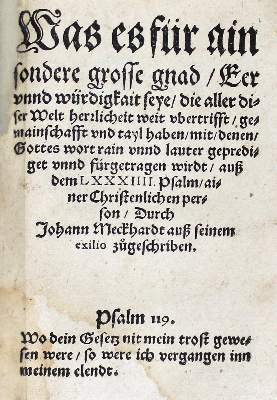 Was es für ain
sondere grosse gnad / Eer
vnnd würdigkait seye / die aller di⸗
ser Welt herrlicheit weit vbertrifft / ge⸗
mainschafft vnd tayl haben / mit / denen /
Gottes wort rain vnnd lauter gepredi⸗
get vnnd fürgetragen wirdt / auß
dem LXXXIIII. Psalm / ai⸗
ner Christenlichen per⸗
son / Durch
Johann Meckhardt auß seinem
exilio zůgeschriben.
Psalm 119.
Wo dein Gesetz nit mein trost gewe⸗
sen were / so were ich vergangen inn
meinem elendt.